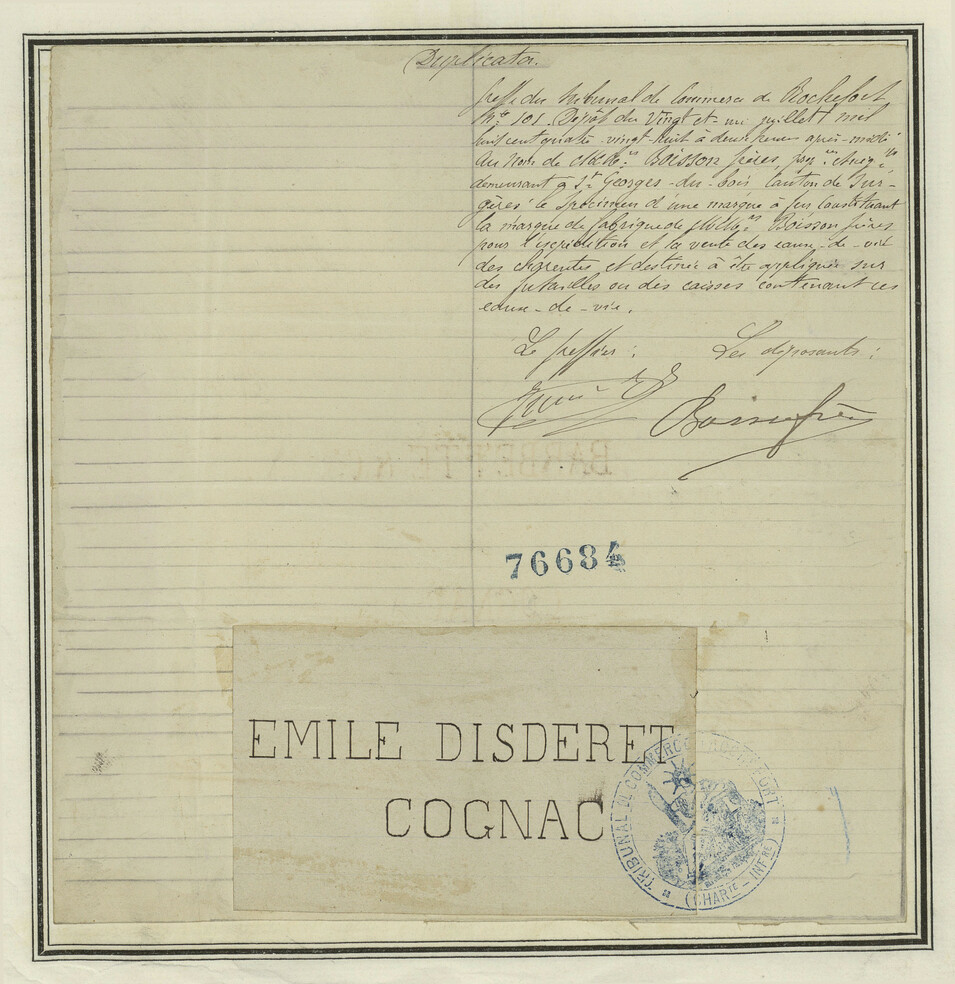 Duplicata.
Greffe du Tribunal de Commerce de Rochefort
N.º 101. Dépôt du Vingt et un juillet mil
huit cent quatre-vingt-huit à deux heures après-midi
Au nom de MM. Boisson frères,
demeurant à St. Georges-du-bois Canton de Sur-
gères le specimen d'une marque à feu constituant
la marque de fabrique de MM. Boisson frères
pour l'expédition et la vente des eaux-de-vie
des charentes et destinée à être appliquée sur
des futailles ou des caisses contenant ces
eaux-de-vie.
Le greffier : Les déposants :
Boisson frères
BARBET
76684
EMILE DISDERET
COGNAC
TRIBUNAL DE COMMERCE ROCHEFORT
(CHARTE - INFRE)